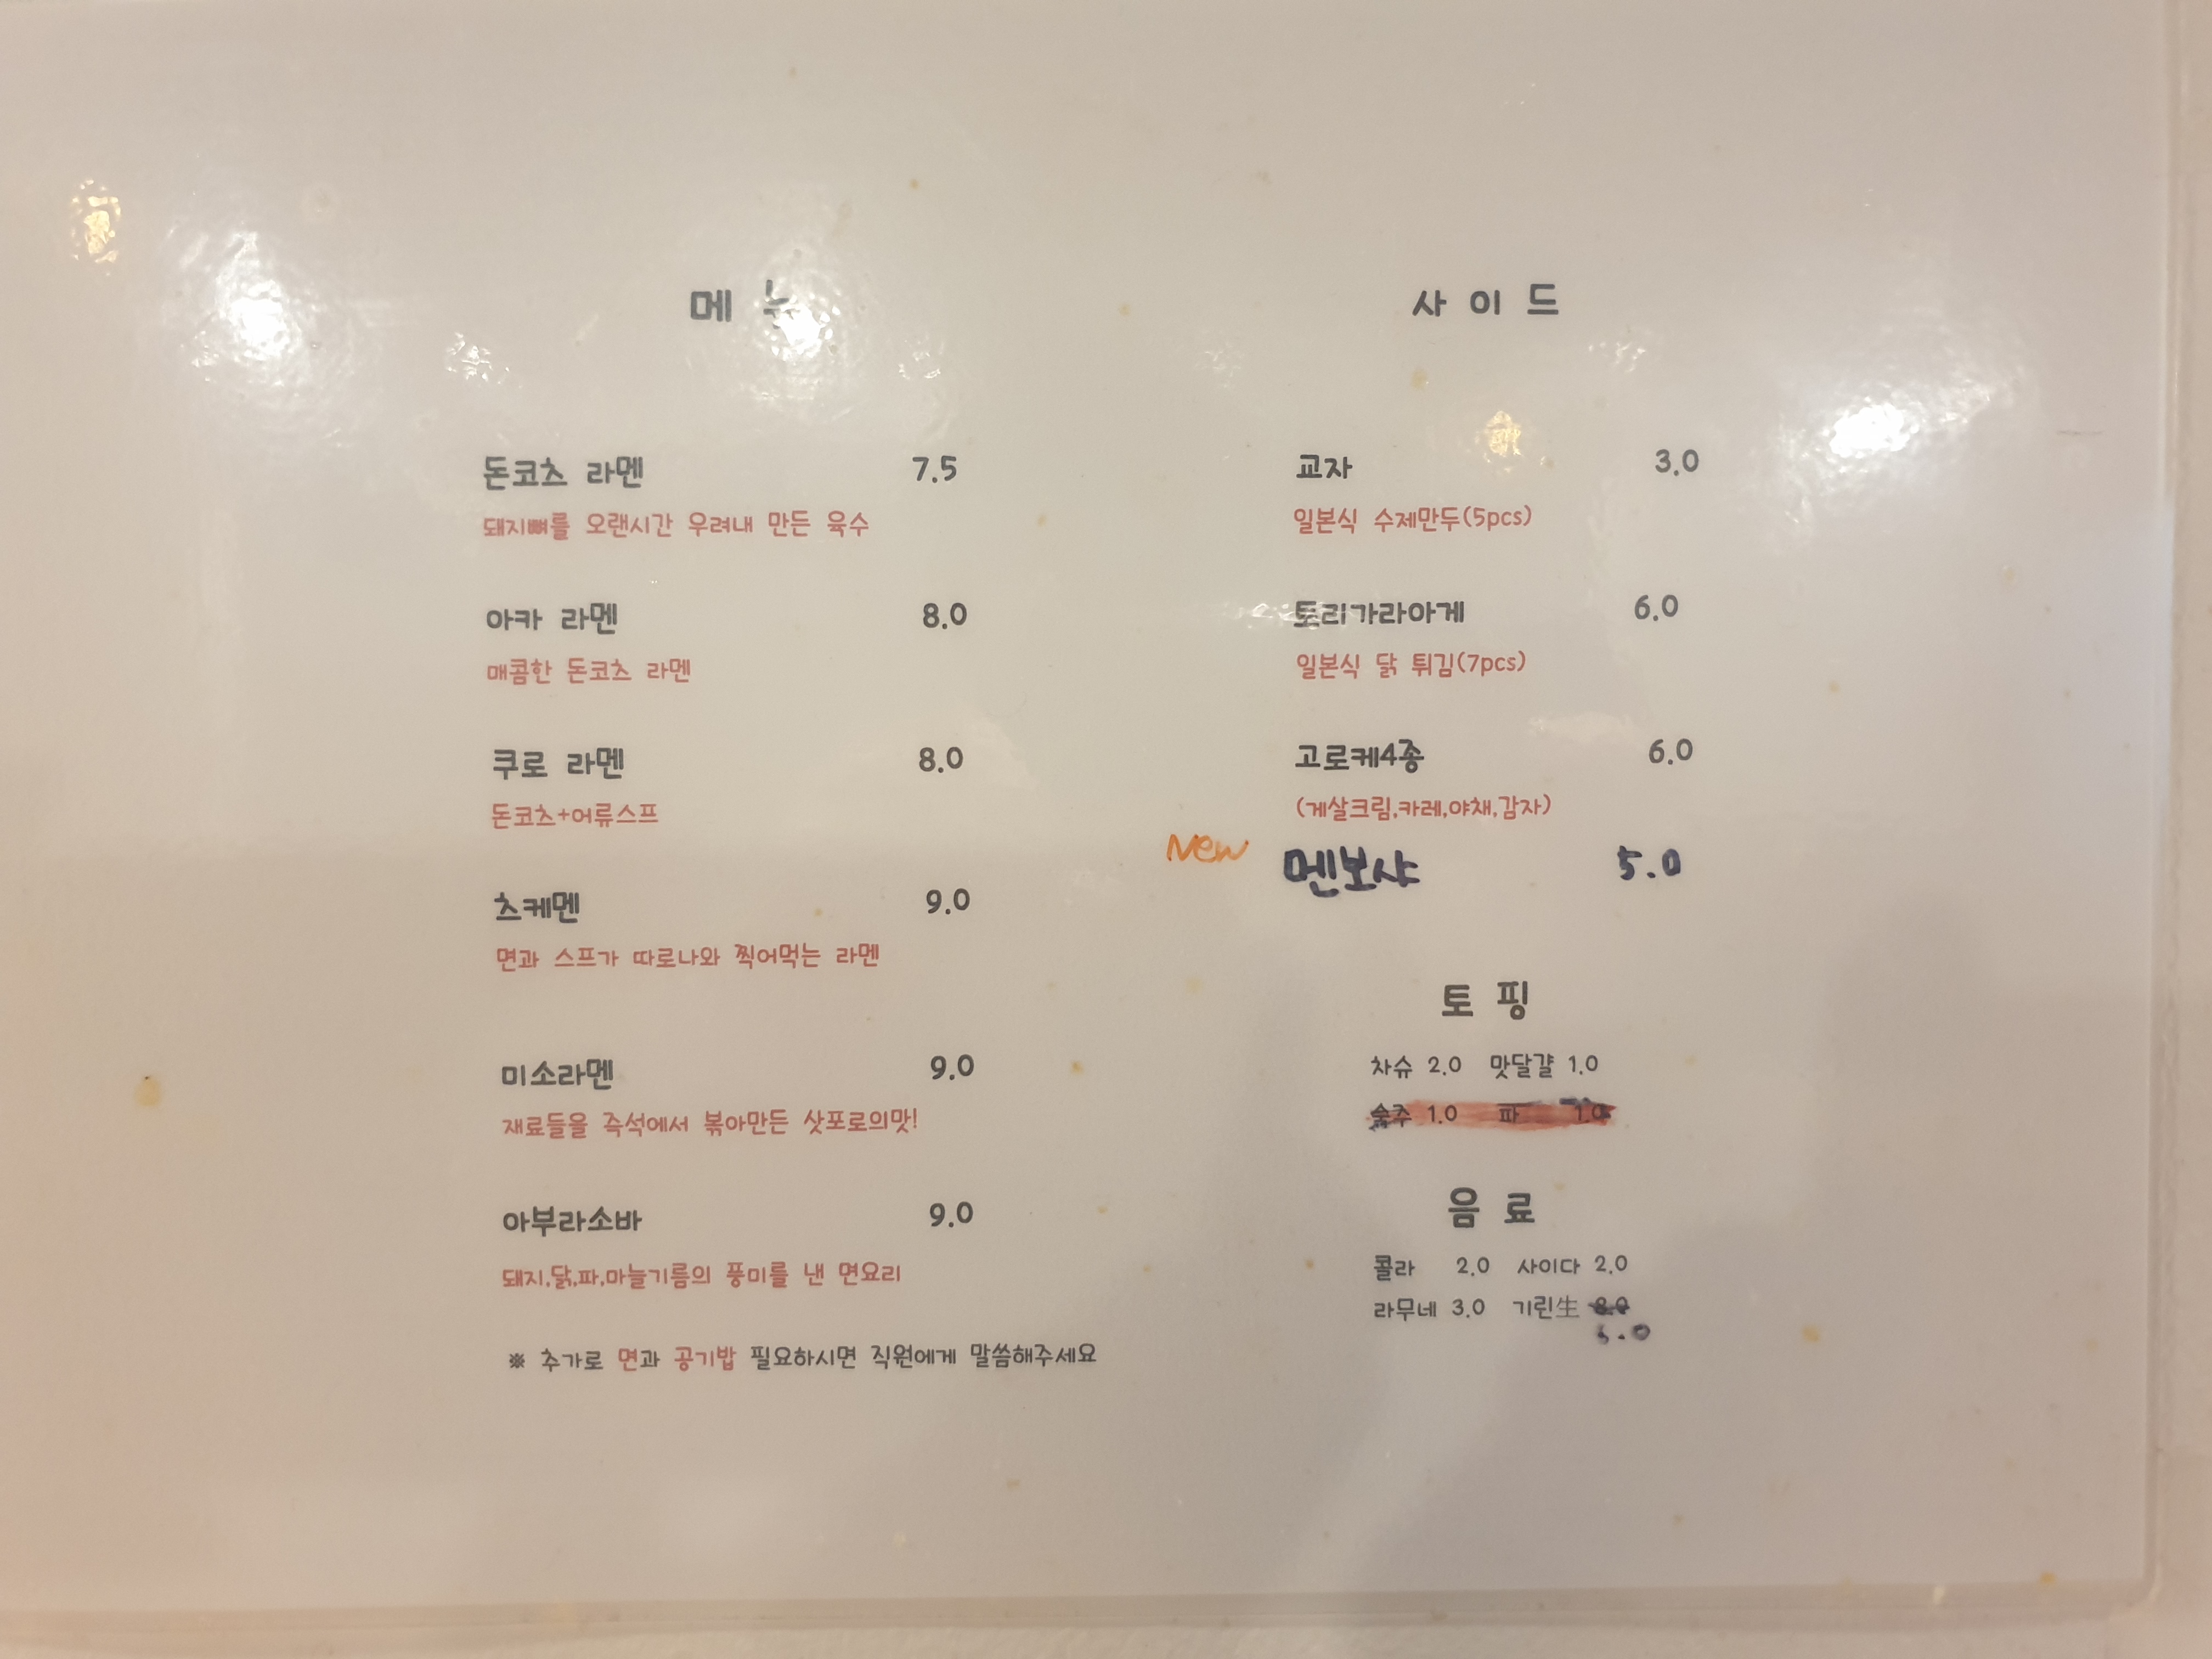 메 뉴
돈코츠 라멘 7.5
돼지뼈를 오랜시간 우려내 만든 육수
아카 라멘 8.0
매콤한 돈코츠 라멘
쿠로 라멘 8.0
돈코츠+어류스프
츠케멘 9.0
면과 스프가 따로나와 찍어먹는 라멘
미소라멘 9.0
재료들을 즉석에서 볶아만든 삿포로의맛!
아부라소바 9.0
돼지,닭,파,마늘기름의 풍미를 낸 면요리
※ 추가로 면과 공기밥 필요하시면 직원에게 말씀해주세요
사 이 드
교자 3.0
일본식 수제만두(5pcs)
토리가라아게 6.0
일본식 닭 튀김(7pcs)
고로케4종 6.0
(게살크림,카레,야채,감자)
New 멘보샤 5.0
토 핑
차슈 2.0 맛달걀 1.0
숙주 1.0 파 1.0
음 료
콜라 2.0 사이다 2.0
라무네 3.0 기린生